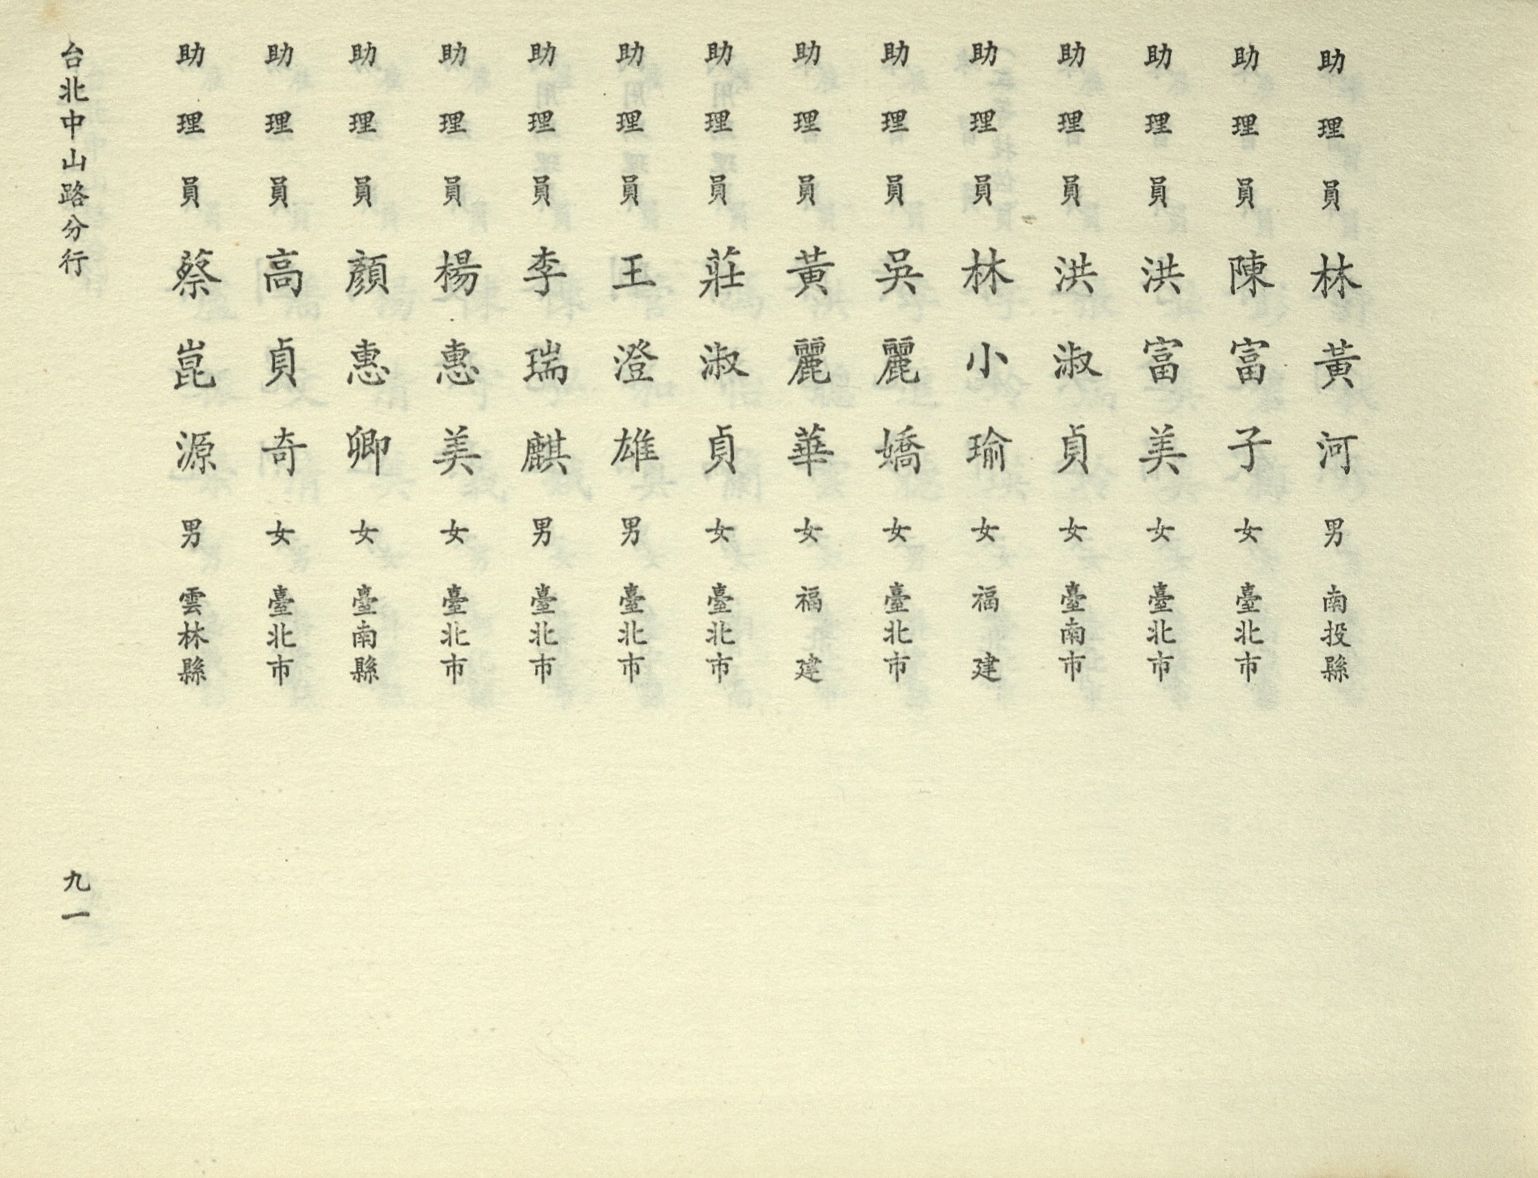 助理員林黃河男南投縣
助理員陳富子女臺北市
助理員洪富美女臺北市
助理員洪淑貞女臺南市
助理員林小瑜女福建
助理員吳麗嬌女臺北市
助理員黃麗華女福建
助理員莊淑貞女臺北市
助理員王澄雄男臺北市
助理員李瑞麒男臺北市
助理員楊惠美女臺北市
助理員顏惠卿女臺南縣
助理員高貞奇女臺北市
助理員蔡崑源男雲林縣
台北中山路分行
九一